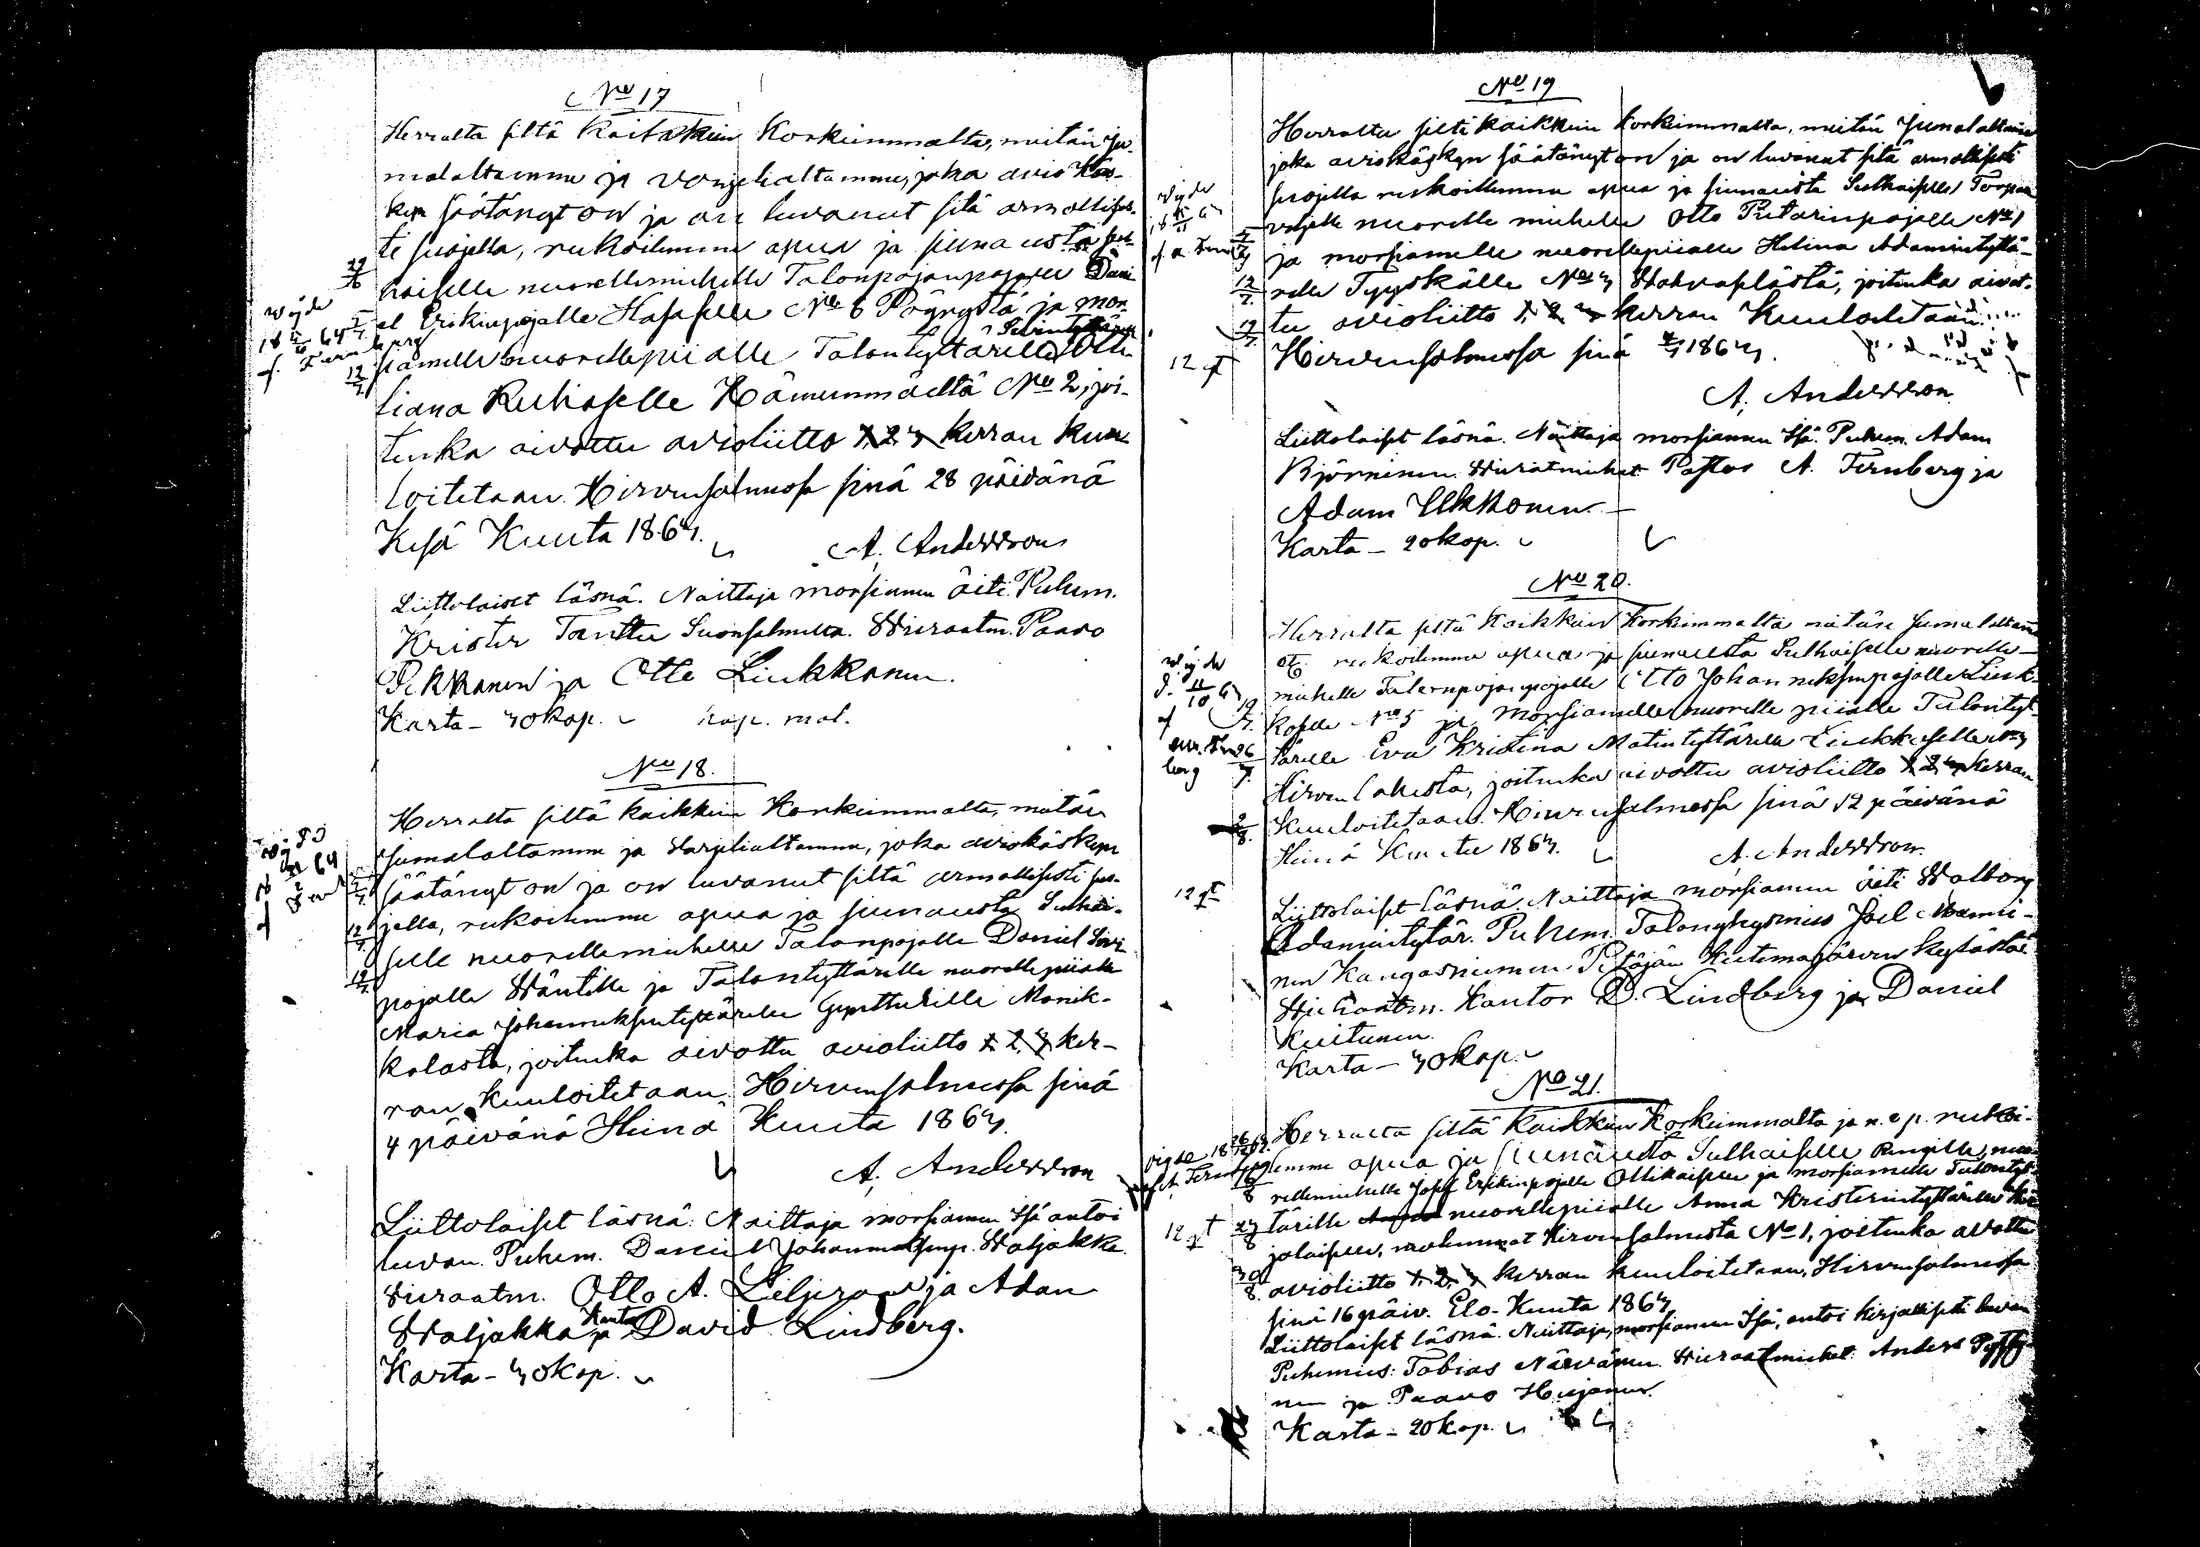 No 17
Herralta siltä Kaikkein Korkeimmalta, meitän Ju-
malaltamme ja varjeliattamme, joka avio Käs-
kyn säätänyt on ja on luvanut sitä armollises-
ti suojella, rukoilemme apua ja siunausta sul-
haiselle nuorellemiehelle Talonpojanpojalle Dani-
el Erikinpojalle Hasaselle No 6 Pöyrystä ja mor-
siamelle nuorellepiialle Talontyttärelle
liana Reihaselle Hämeenmäeltä No 2, joi-
tenka aivottu avioliitto 1. 2. 3 kerran kuu-
loitetaan. Hirvensalmessa sinä 28 päivänä
Kesä Kuuta 1863.
A. Andersson
Liittolaiset läsnä. Naittaja morsiamen äiti. Puhem.
Krister Tanttu Suonsalmelta. Wieraatm. Paavo
Pekkanen ja Otto Liukkonen.
Karta - 30 kop. kop. mal.
29/6
wijde
18 64
f. Ternberg
12/7
No 18.
Herralta siltä kaikkein Korkeimmalta, meitän
Jumalaltamme ja Varjeliattamme, joka aviokäskyn
säätänyt on ja on luvanut siltä armollisesti suo-
jella, rukoilemme apua ja siunausta Sulhai-
selle nuorellemiehelle Talonpojalle Daniel
pojalle Wäntille ja Talontyttärelle nuorellepiialle
Maria Johanneksentyttärelle Monik-
kalasta, joitenka aivottu avioliitto 1. 2. 3 ker-
ran kuuloitetaan. Hirvensalmessa sinä
4 päivänä Heinä Kuuta 1863.
A. Andersson
Liittolaiset läsnä: Naittaja morsiamen Isä antoi
luvan. Puhem. Daniel Johanneksenp. Waljakka.
Wieraatm. Otto A. Liljeroos ja Adam
Waljakka ja Kantor David Lindberg.
Karta - 30 kop.
12/7
19/7
No 19
Herralta siltä kaikkein korkeimmalta, meitän Jumalaltamme
joka aviokäskyn säätänyt on ja on luvanut sitä armollisesti
suojella rukoilemme apua ja siunausta Sulhaiselle Torpan
veljelle nuorelle miehelle Otto Petarinpojalle No 1
ja morsiamelle nuorellepiialle Helena Adamintyttä-
relle Tyyskälle No 3 Wahvaselästä, joitenka aivot-
tu avioliitto 1. 2. 3 kerran Kuuloitetaan
Hirvensalmessa sinä 4/7 1863.
A. Andersson
Liittolaiset läsnä. Naittaja morsiamen Isä. Puhem. Adam
Björninen. Wieraatmiehet Pastor A. Ternberg ja
Adam Ukkonen.
Karta - 20 kop.
5/7
12/7
19/7
12
No 20.
Herralta siltä Kaikkein Korkeimmalta meitän Jumalaltamme
etc. rukoilemme apua ja siunausta Sulhaiselle nuorelle
miehelle Talonpojanpojalle Otto Johanneksenpojalle Liuk-
koselle No 5 ja morsiamelle nuorelle piialle Talontyt-
tärelle Eva Kristina Matintyttärelle Liukkoselle No 3
Hirvenlahesta, joitenka aivottu avioliitto 1. 2. 3 kerran
Kuuloitetaan. Hirvensalmessa sinä 12 päivänä
Heinä Kuuta 1863.
A. Andersson
Liittolaiset läsnä. Naittaja morsiamen äiti Walborg
Adamintytär. Puhem. Talonyhysmies Joel Manni-
nen Kangasniemen Pitäjän Kutemajärven kylästä.
Wieraatm. Kantor D. Lindberg ja Daniel
Kuitunen.
Karta - 30 kop.
wijde
19/7
26/7
2/8
12
No 21.
Herralta siltä Kaikkein Korkeimmalta ja n. e. p. rukoi-
lemme apua ja siunausta Sulhaiselle Rengille, nuo-
rellemiehelle Josef Erikinpojalle Ollikaiselle ja morsiamelle Talontyt-
tärille nuorellepiialle Anna Kristerintyttärelle
jalaiselle, molemmat Hirvensalmesta No 1, joitenka aivottu
avioliitto 1. 2. 3 kerran kuuloitetaan. Hirvensalmessa
sinä 16 päiv. Elo-Kuuta 1863
Liittolaiset läsnä. Naittaja, morsiamen Isä, antoi kirjallisesti luvan
Puhemies: Tobias Närvänen. Wieraatmiehet: Anders
nen ja Paavo Hiejanen.
Karta - 20 kop.
16/8
23/8
30/8
12